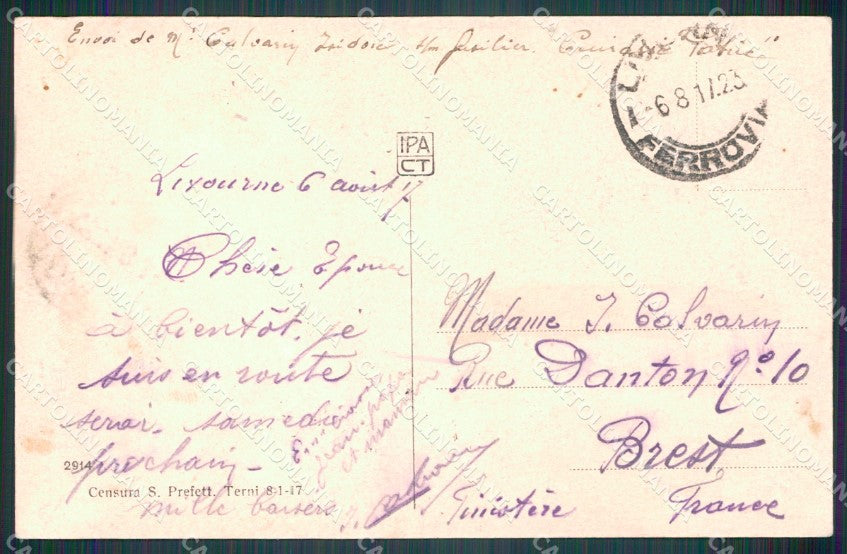 Envoi de Mr Calvarin Isidore fusilier.
6 8 17.23
FERROVIA
IPA
CT
Livourne 6 août 17
Chère Epouse
à bientôt, je
suis en route
serai samedi
prochain -
Mille baisers
Jean papa
et maman
Madame J. Calvarin
Rue Danton No 10
Brest
Finistère France
2914
Censura S. Prefett. Terni 8-1-17
CARTOLINOMANIA